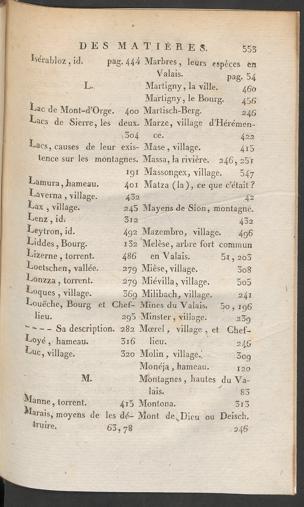 DES MATIÈRES. 553
Isérabloz, id. pag. 444
L.
Lac de Mont-d'Orge. 400
Lacs de Sierre, les deux.
304
Lacs, causes de leur exis-
tence sur les montagnes.
191
Lamura, hameau. 401
Laverna, village. 432
Lax, village. 245
Lenz, id. 312
Leytron, id. 492
Liddes, Bourg. 132
Lizerne, torrent. 486
Loetschen, vallée. 279
Lonzza, torrent. 279
Loques, village. 369
Louëche, Bourg et Chef-
lieu. 295
---- Sa description. 282
Loyé, hameau. 316
Luc, village. 320
M.
Manne, torrent. 415
Marais, moyens de les dé-
truire. 63, 78
Marbres, leurs espèces en
Valais. pag. 54
Martigny, la ville. 460
Martigny, le Bourg. 456
Martisch-Berg. 246
Marze, village d'Hérémen-
ce. 422
Mase, village. 415
Massa, la rivière. 246, 251
Massongex, village. 547
Matza (la), ce que c'était?
42
Mayens de Sion, montagne.
432
Mazembro, village. 496
Melèse, arbre fort commun
en Valais. 51, 203
Mièse, village. 308
Miéville, village. 505
Milibach, village. 241
Mines du Valais. 50, 196
Minster, village. 239
Mœrel, village, et Chef-
lieu. 246
Molin, village. 309
Monéja, hameau. 120
Montagnes, hautes du Va-
lais. 83
Montona. 313
Mont de Dieu ou Deisch.
246